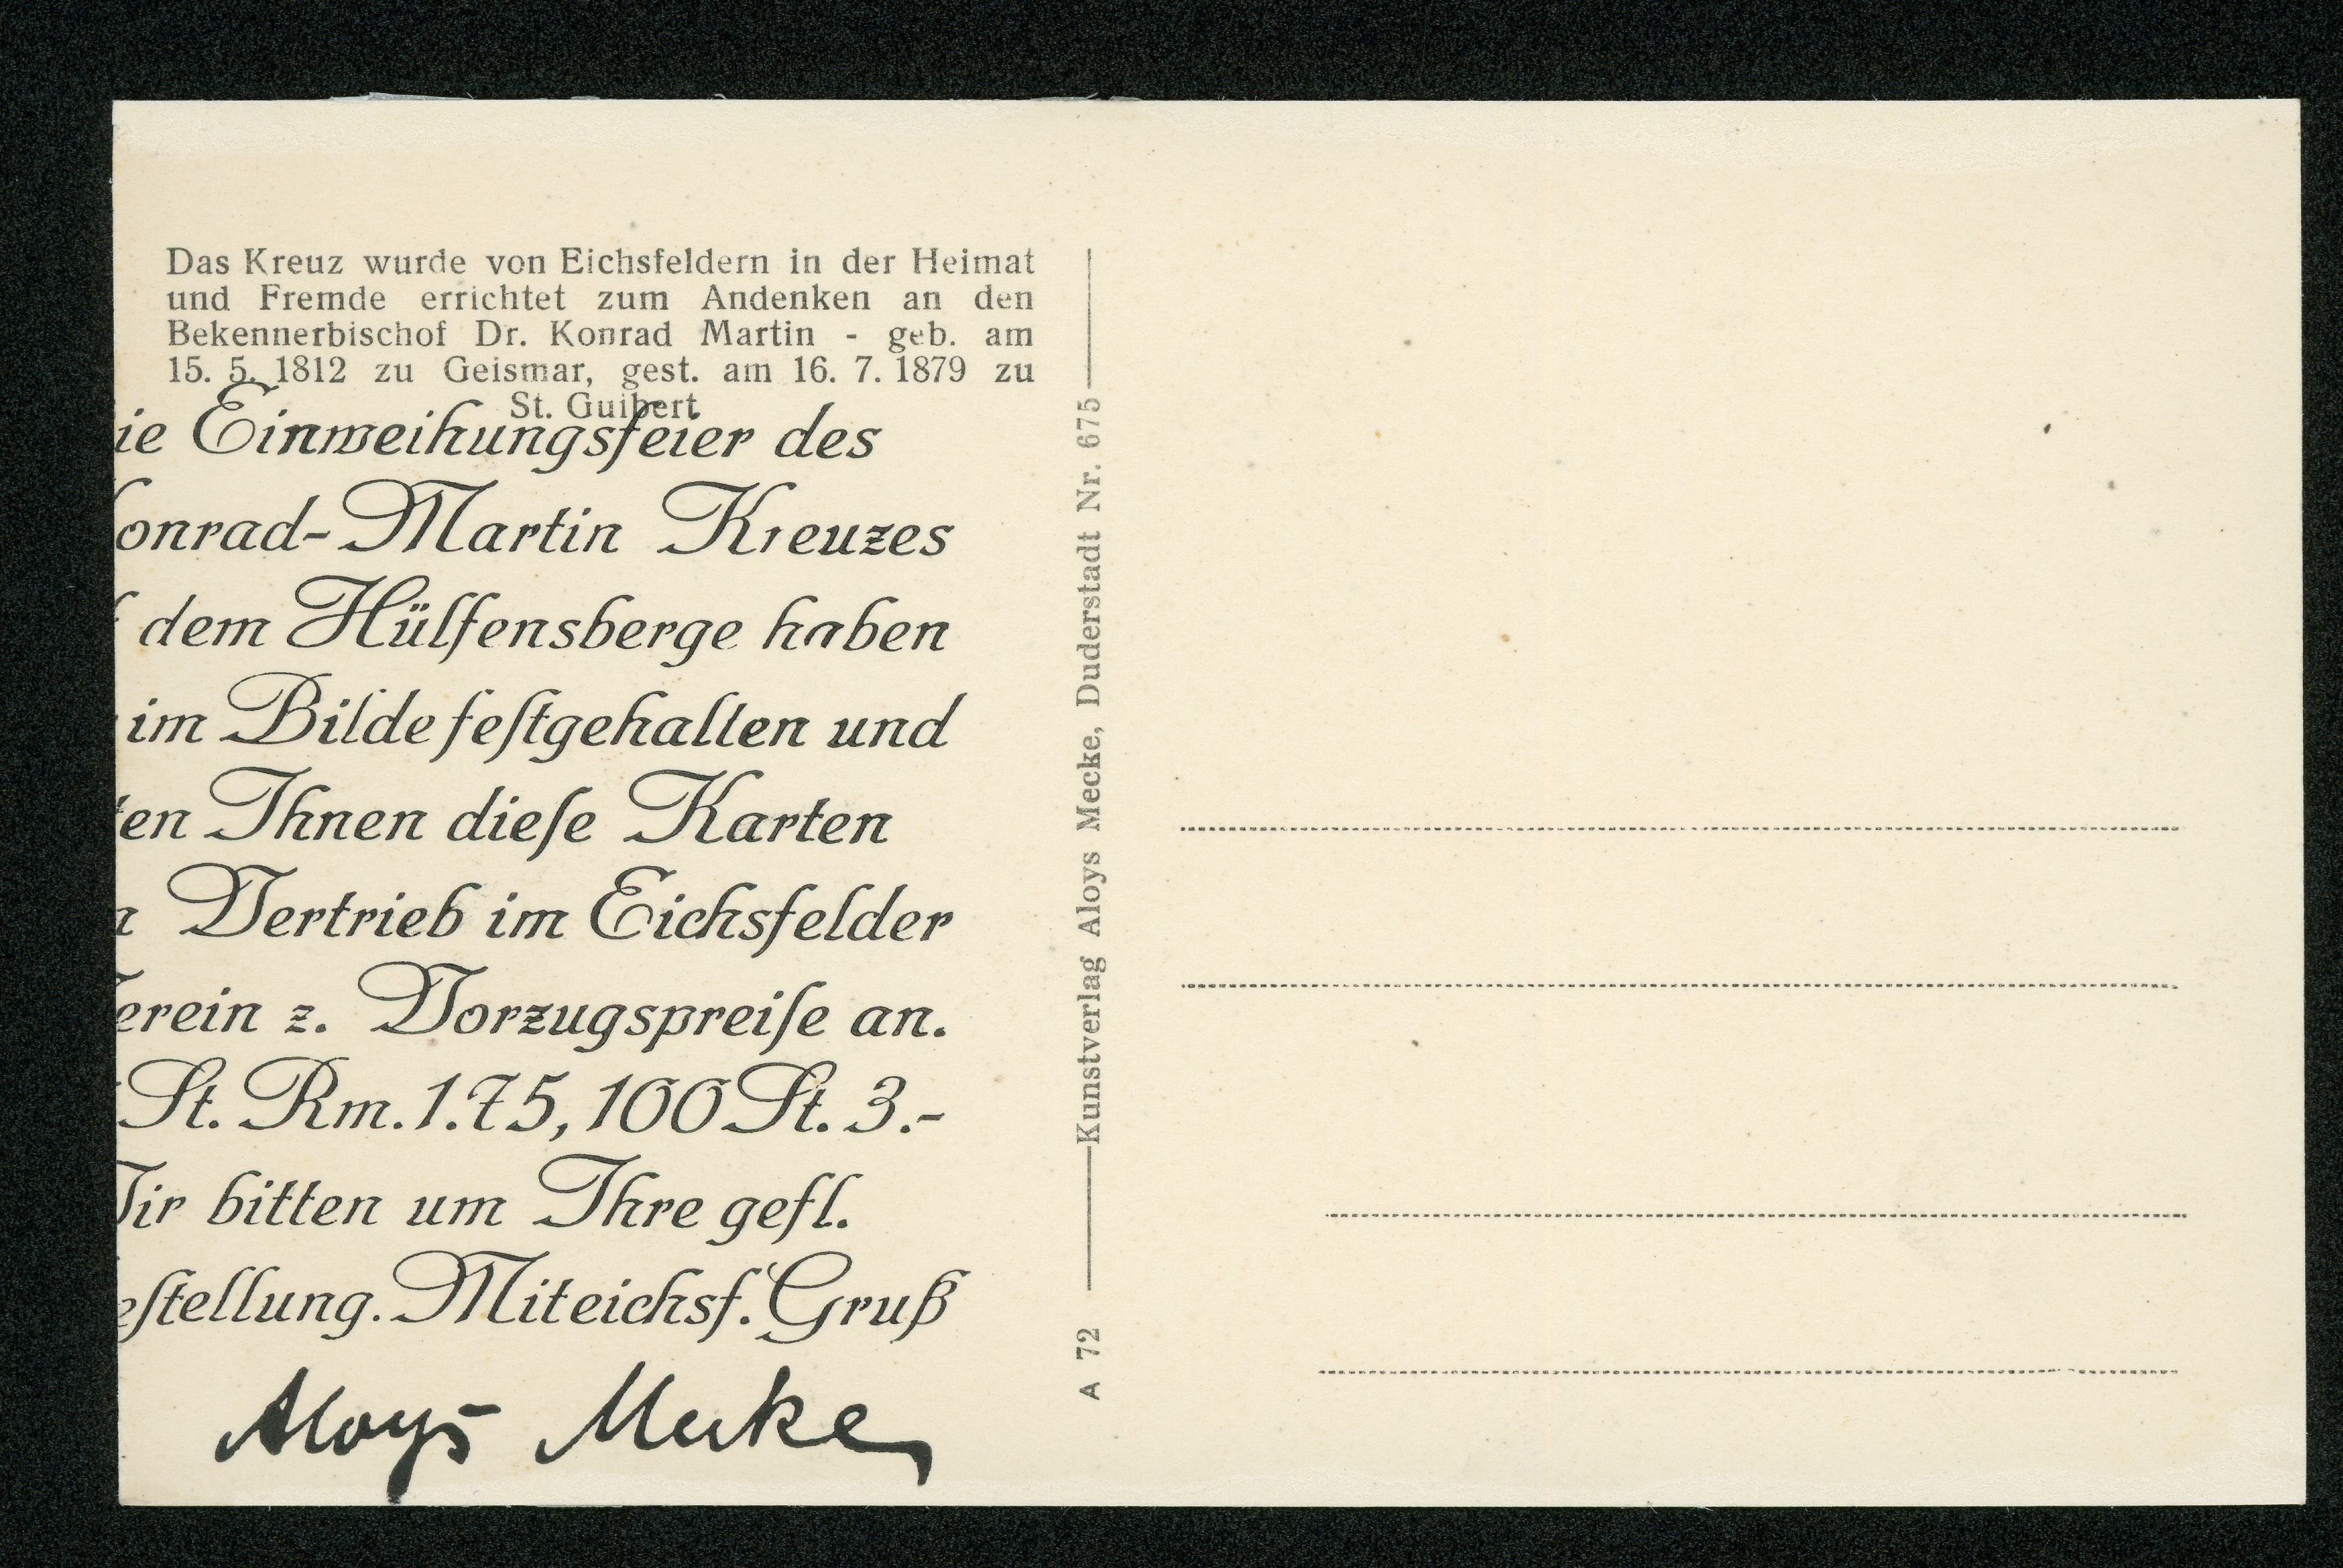 Das Kreuz wurde von Eichsfeldern in der Heimat
und Fremde errichtet zum Andenken an den
Bekennerbischof Dr. Konrad Martin - geb. am
15. 5. 1812 zu Geismar, gest. am 16. 7. 1879 zu
St. Guibert
ie Einweihungsfeier des
onrad-Martin Kreuzes
dem Hülfensberge haben
im Bilde feſtgehalten und
ten Ihnen dieſe Karten
Vertrieb im Eichsfelder
erein z. Vorzugspreiſe an.
St. Rm. 1.75, 100 St. 3.-
ir bitten um Ihre gefl.
eſtellung. Mit eichsf. Gruß
Aloys Mecke
A 72 Kunstverlag Aloys Mecke, Duderstadt Nr. 675